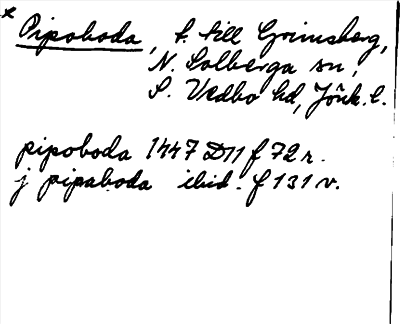 * Pipoboda, t. till Grimsberg,
N. Solberga sn,
S. Vedbo hd, Jönk. l.
pipoboda 1447 D11 f 72 r.
j pipaboda ibid. f 131 v.